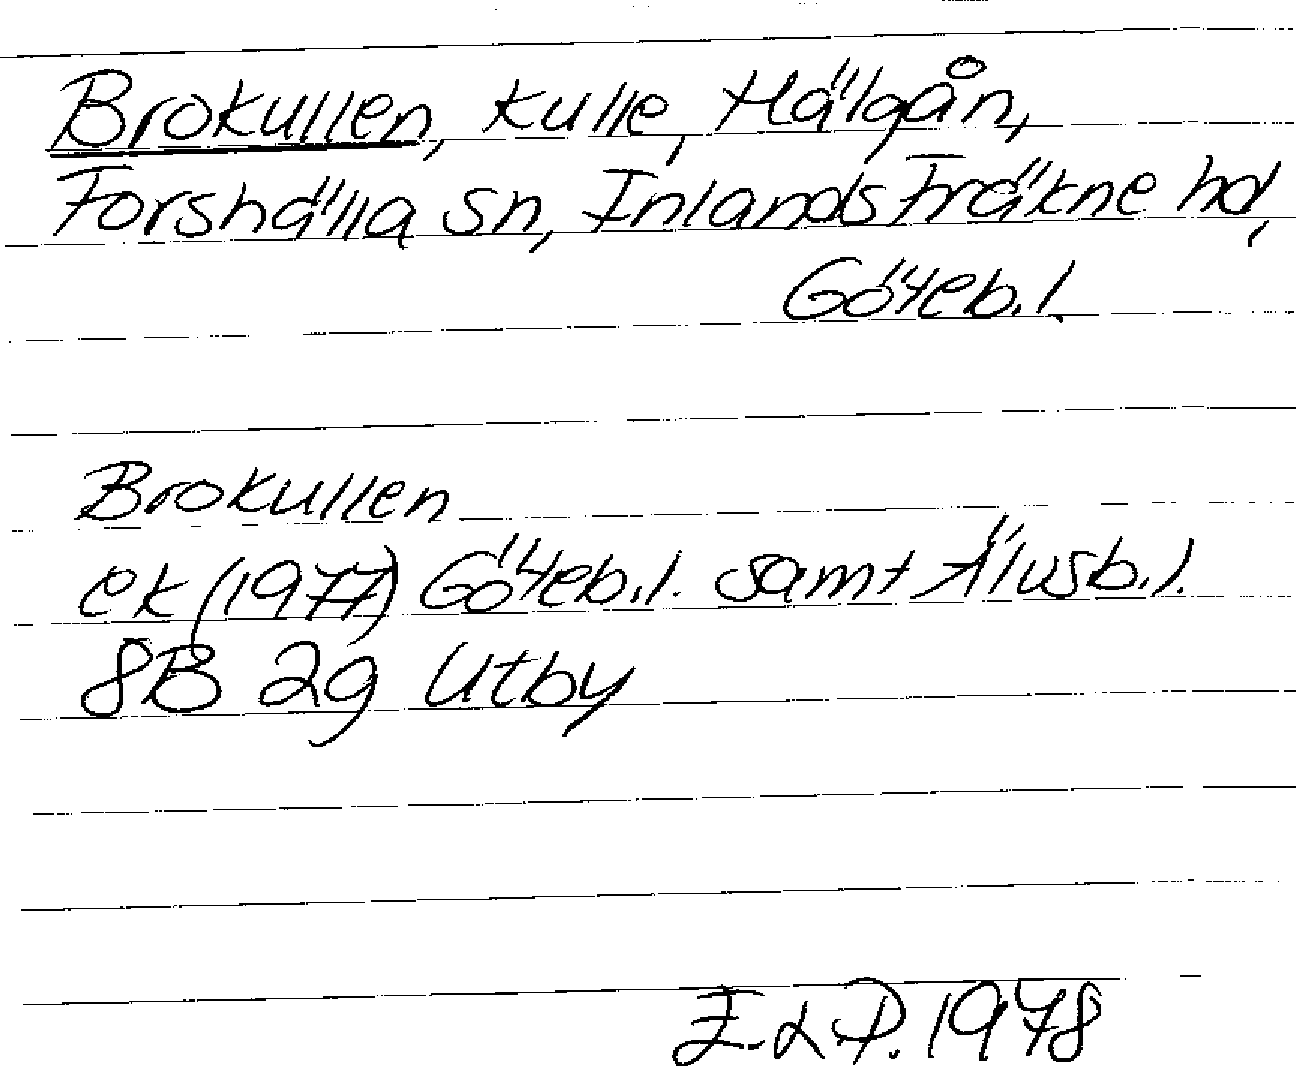 Brokullen, kulle, Hälgån,
Forshälla sn, Inlands Fräkne hd,
Göteb. l.
Brokullen
ek (1977) Göteb. l. samt Älvsb. l.
8B 2g Utby
1978